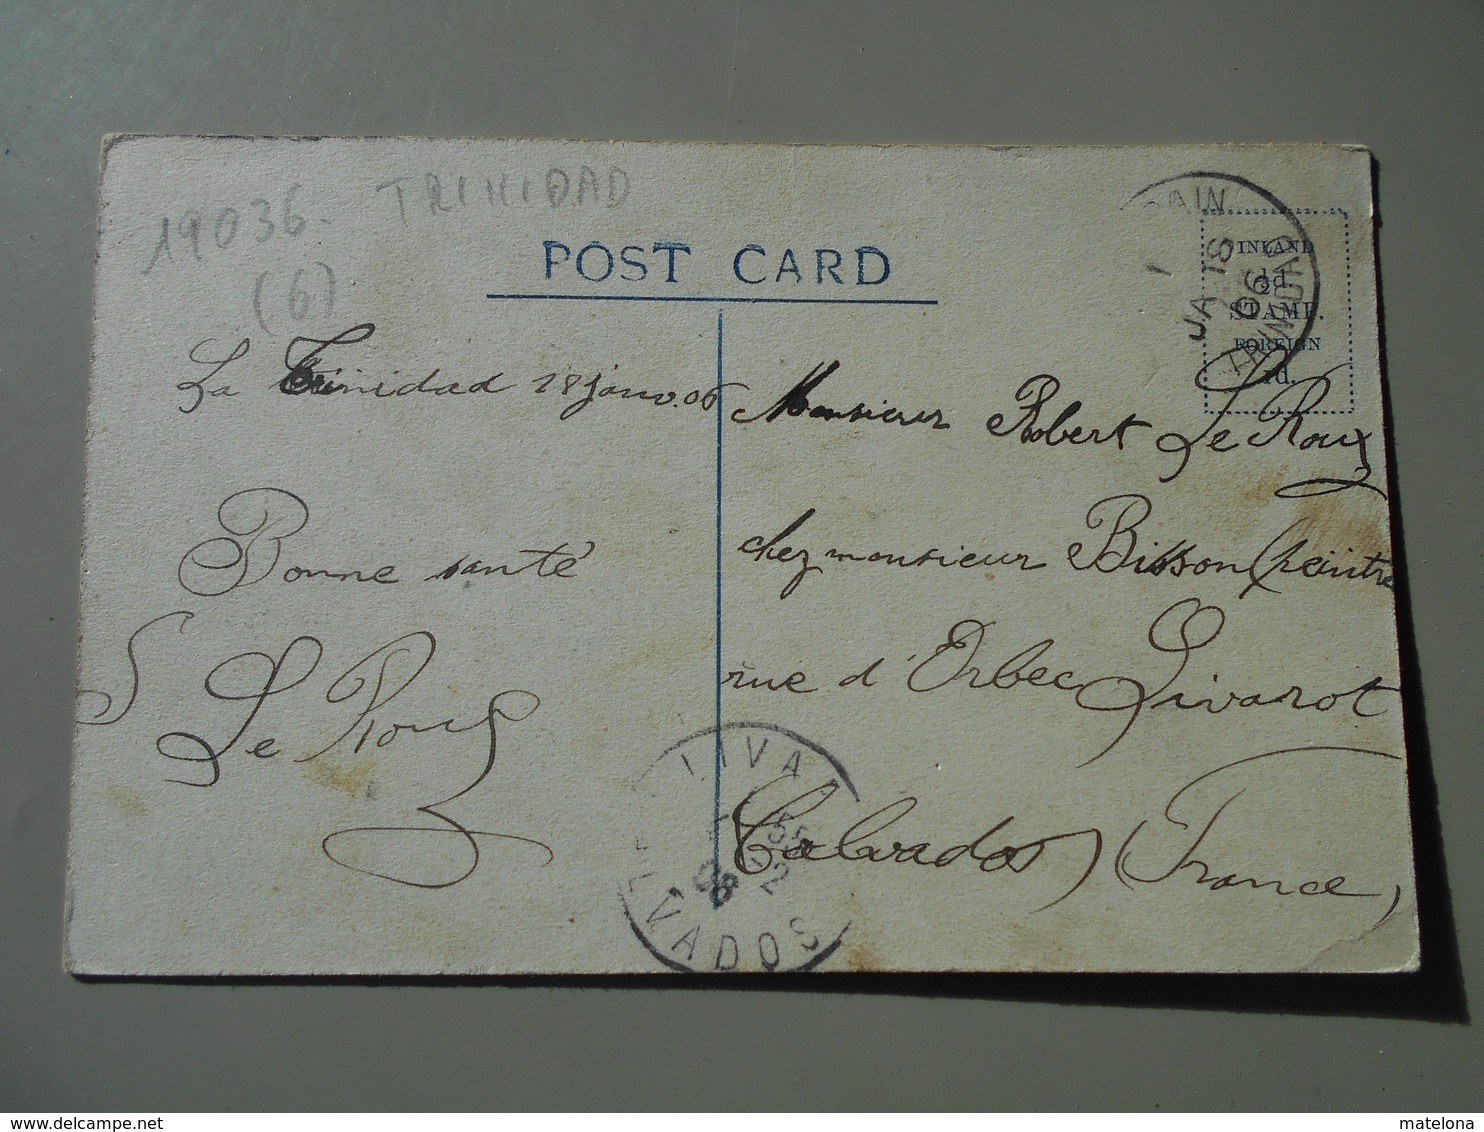 19036.
TRINIDAD
(6)
POST CARD
INLAND
½d.
STAMP.
FOREIGN
1d.
JA 18
06
TRINIDAD
La Trinidad 18 janv. 06
Bonne santé
Le Roux
Monsieur Robert Le Roux
chez monsieur Bisson (peintre
rue d'Orbec Livarot
Calvados (France)
LIVAR
VADOS
delcampe.net
matelona